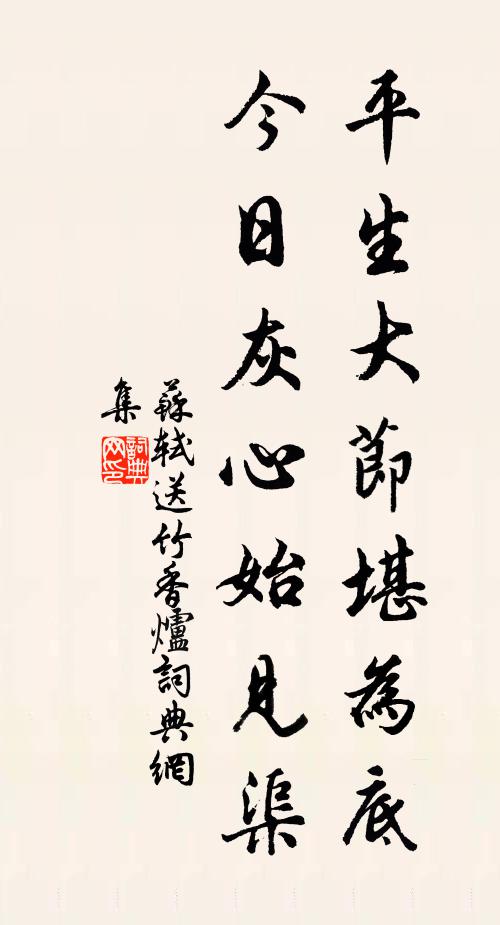 平生大節堪為底
今日灰心始見渠
蘇軾送竹香爐詞典網
集
詞典網印